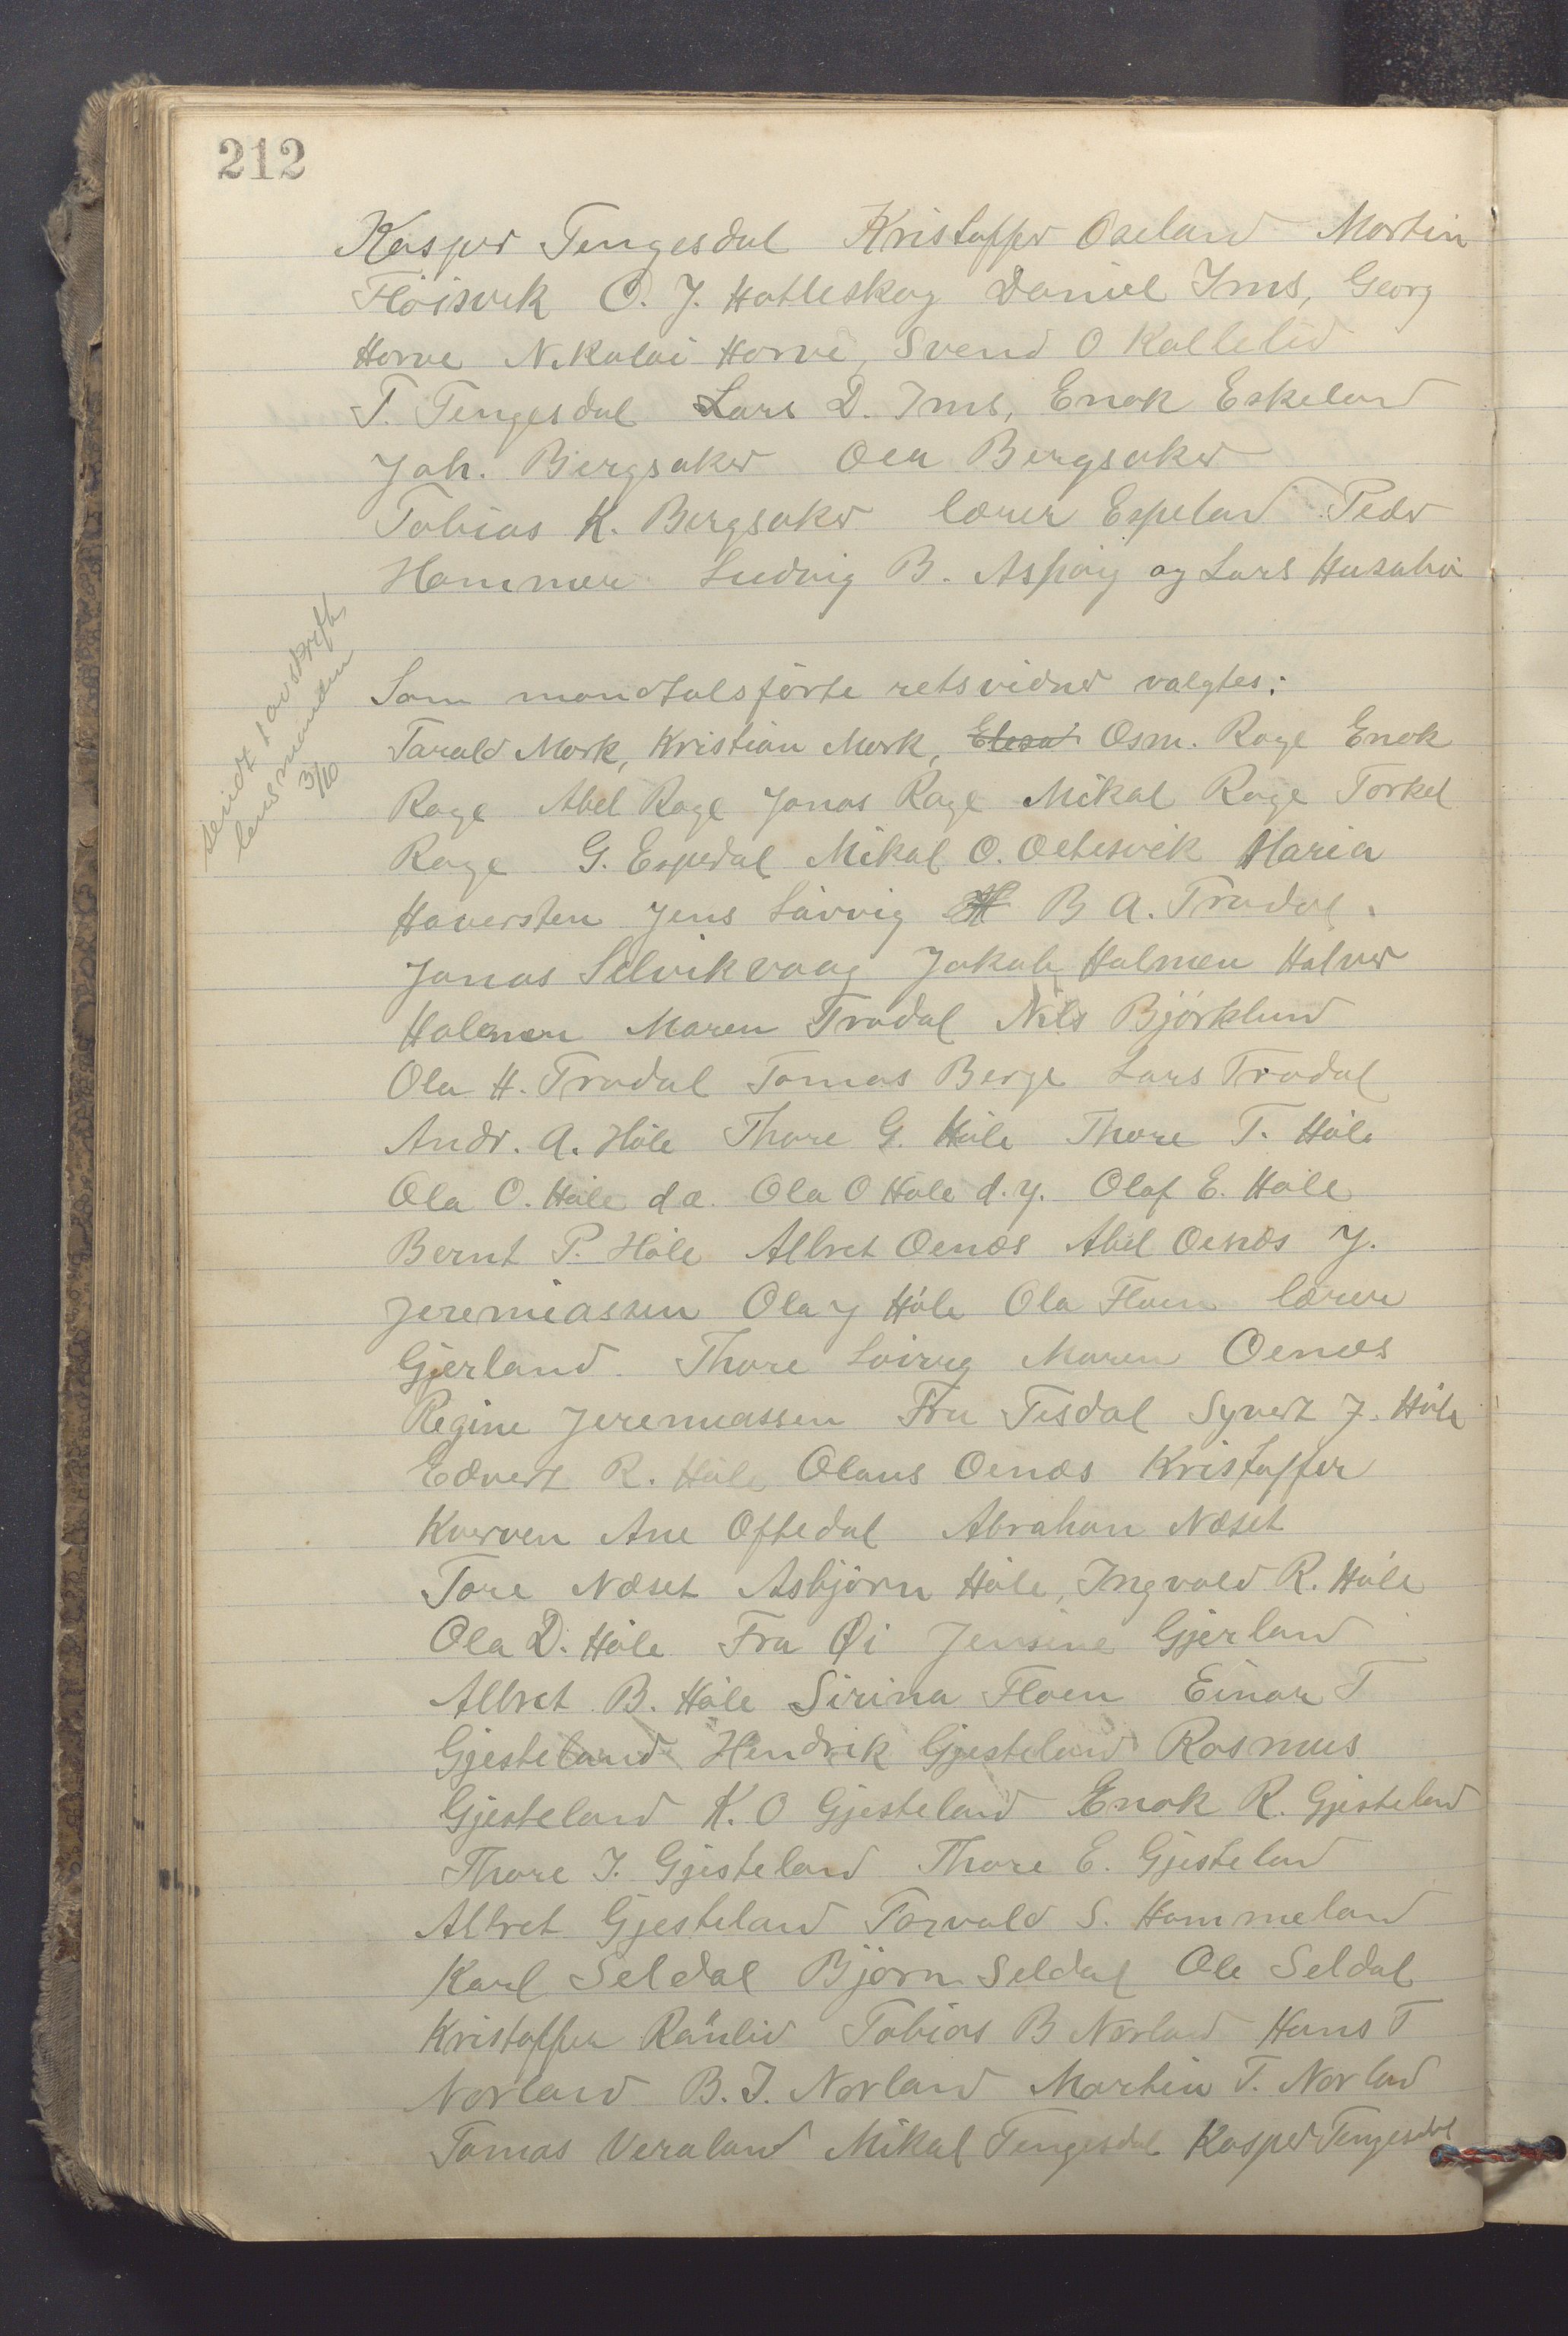 212
Kasper Tengesdal Kristoffer Oaeland Martin
Flöisvik O. J. Hatleskog Daniel Ims, Georg
Horve Nikolai Horve, Svend O Kallelid
T. Tengesdal Lars D. Ims, Enok Eskeland
Joh. Bergsaker Ola Bergsaker
Tobias K. Bergsaker lærer Espeland Peder
Hammer Ludvig B. Aspöy og Lars Husabö
sendt 1 avskrift,
lensmannen
3/10
Som mandtalsförte retsvidner valgtes:
Tarald Mork, Kristian Mork, Osm. Rage Enok
Rage Abel Rage Jonas Rage Mikal Rage Torkel
Rage G. Espedal Mikal O. Oltesvik Maria
Haversten Jens Lövvig B A. Trodal.
Jonas Selvikvaag Jakob Halmen Halver
Holmen Maren Trodal Nils Björklund
Ola H. Trodal Tomas Berge Lars Trodal
Andr. A. Höle Thore G. Höle Thore T. Höle
Ola O. Höle d.æ. Ola O Höle d.y. Olaf E. Höle
Bernt P. Höle Albret Oenæs Abel Oenæs J.
Jeremiassen Ola J Höle Ola Floen lærer
Gjerland. Thore Löivig Maren Oenæs
Regine Jeremiassen Fru Tisdal Syvert J. Höle
Edvert R. Höle Olaus Oenæs Kristoffer
Kverven Ane Oftedal Abraham Næset
Tore Næset Asbjörn Höle, Ingvald R. Höle
Ola D. Höle Fru Øi Jensine Gjerland
Albret B. Höle Sirina Floen Einar T
Gjesteland Hendrik Gjesteland Rasmus
Gjesteland K. O Gjesteland Enok R. Gjesteland
Thore I. Gjesteland Thore E. Gjesteland
Albret Gjesteland Torvald S. Hommeland
Karl Seldal Björn Seldal Ole Seldal
Kristoffer Raunlid Tobias B Norland Hans T
Norland B. I. Norland Martin T. Norland
Tomas Veraland Mikal Tengesdal Kasper Tengesdal